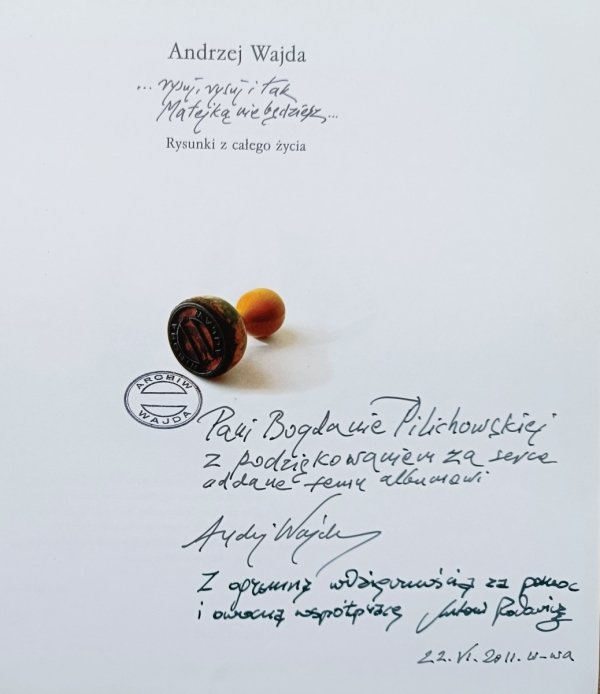 Andrzej Wajda
...rysuj, rysuj i tak
Matejką nie będziesz...
Rysunki z całego życia
ARCHIW
WAJDA
Pani Bogdanie Pilichowskiej
z podziękowaniem za serce
oddane temu albumowi
Andrzej Wajda
Z ogromną wdzięcznością za pomoc
i owocną współpracę
22.VI.2011. W-wa